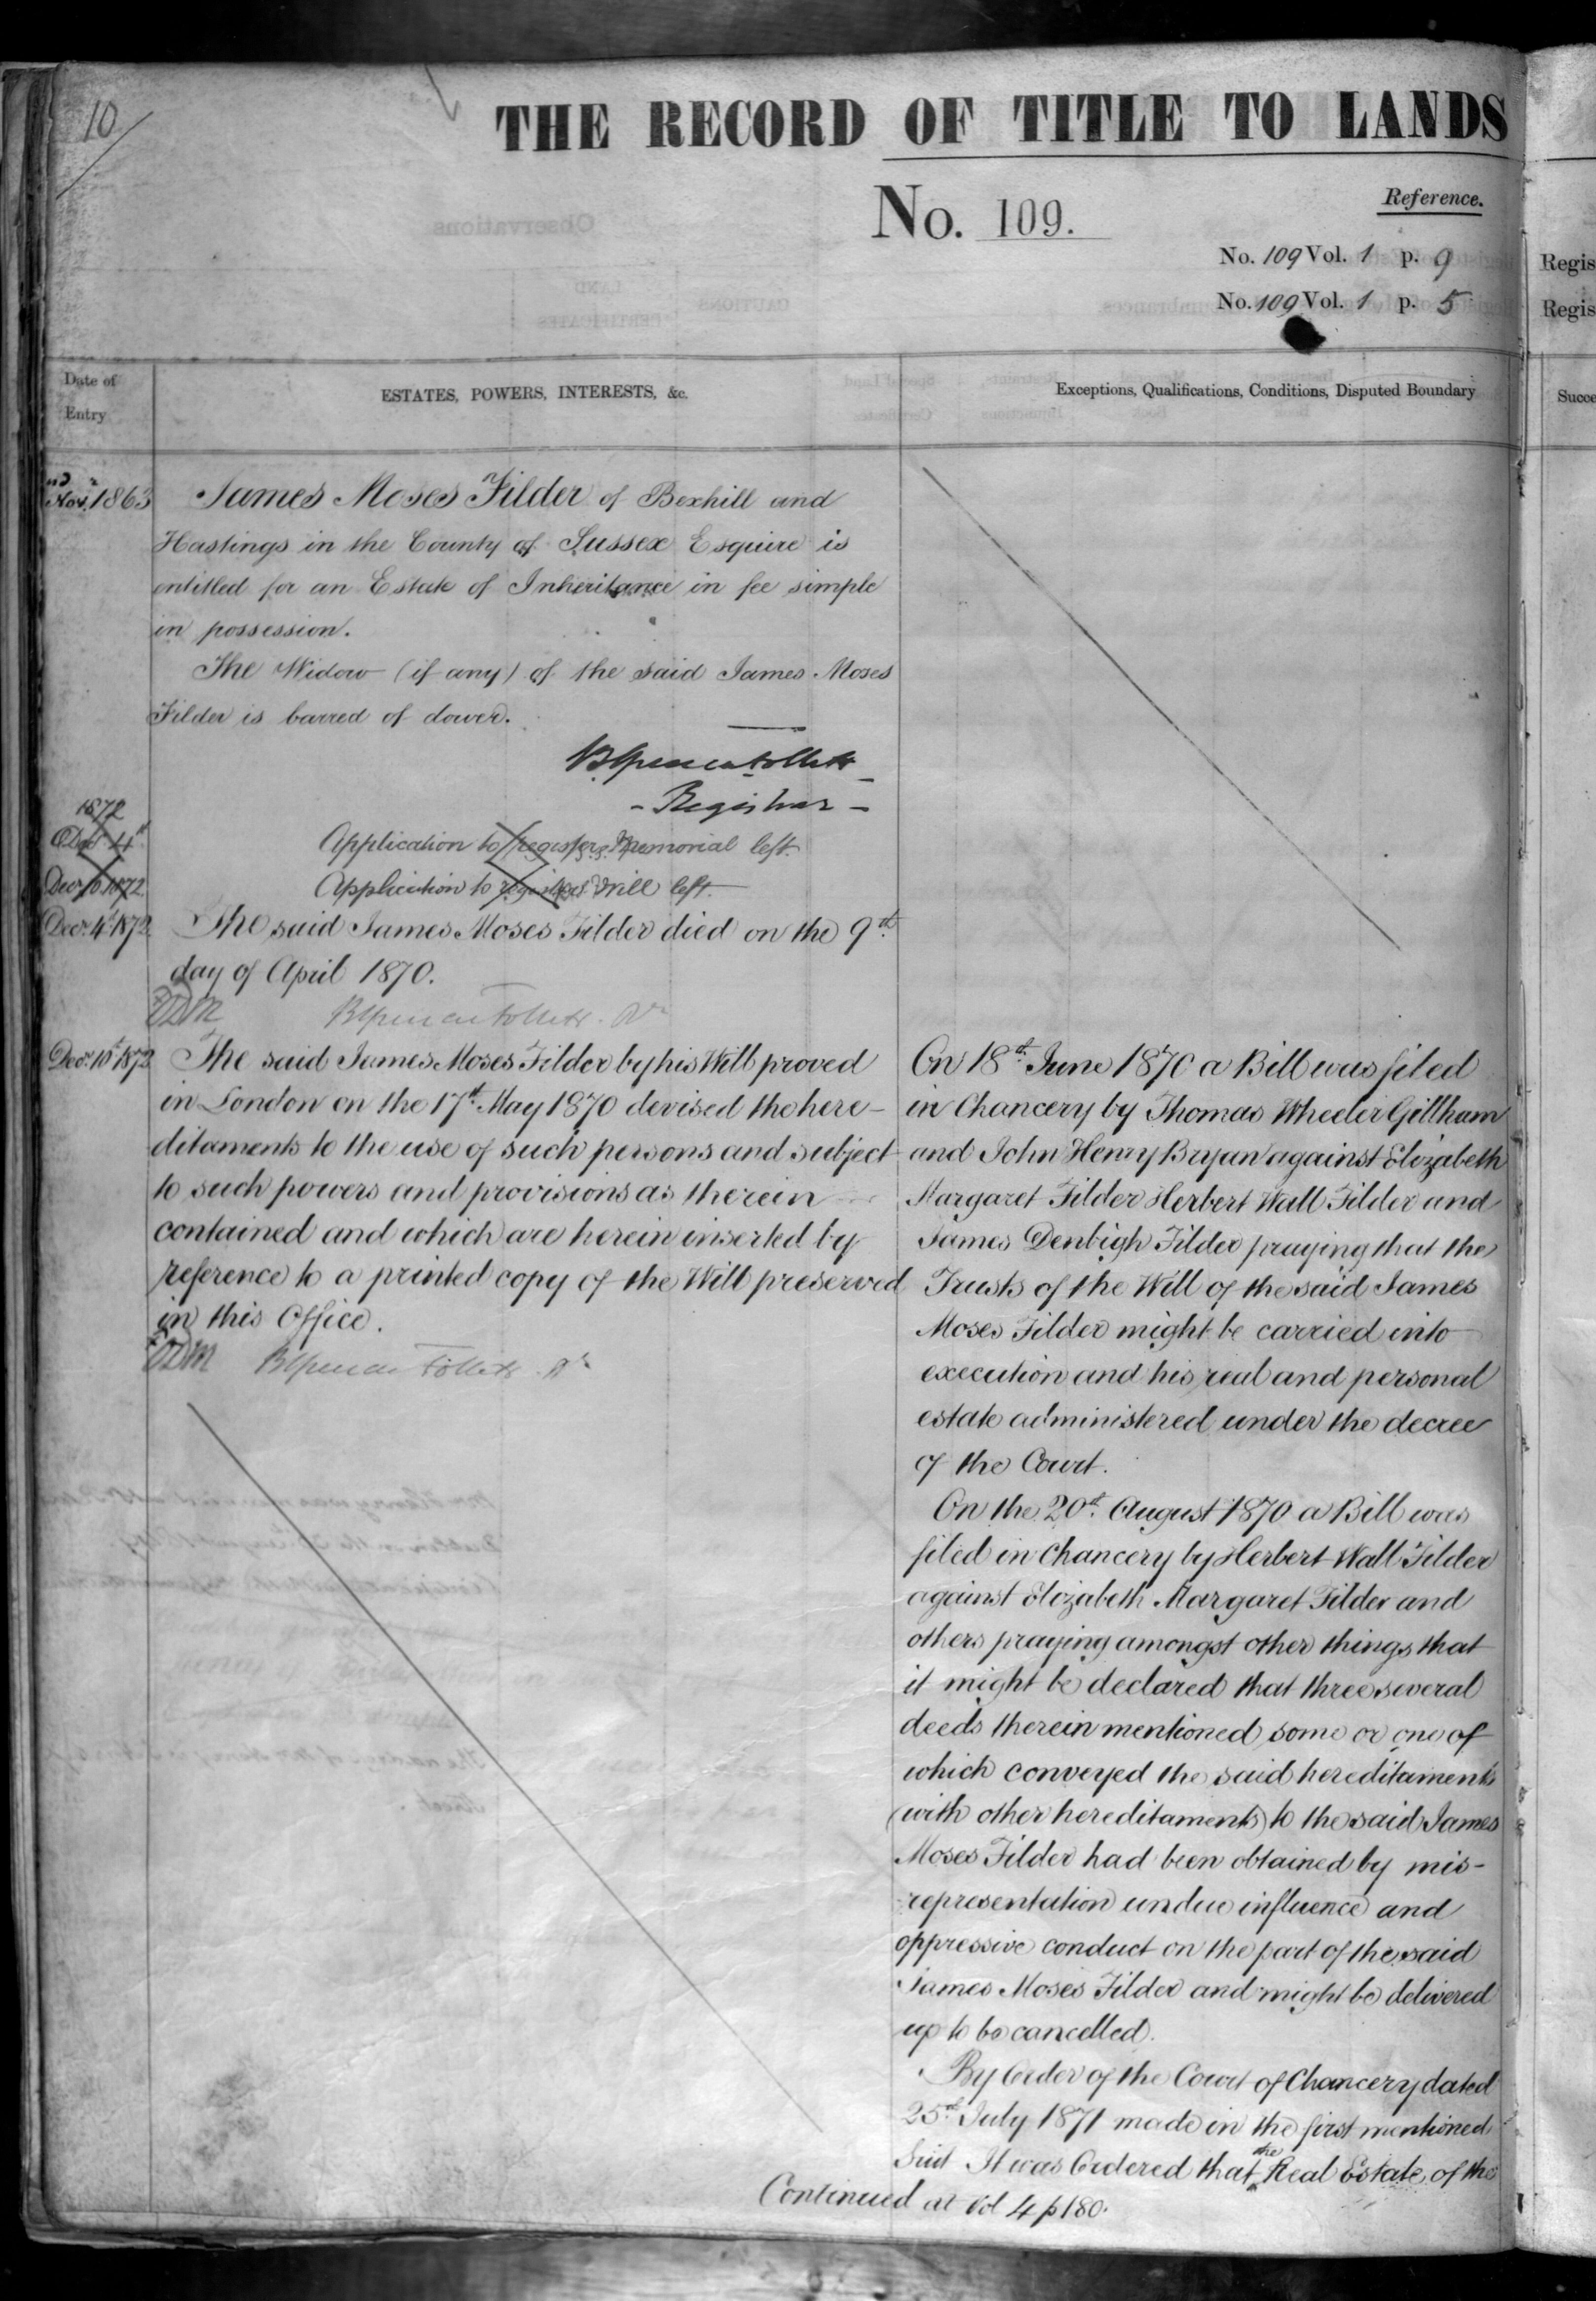 10
THE RECORD OF TITLE TO LANDS
No. 109.
Reference.
No. 109 Vol. 1 p. 9
No. 109 Vol. 1 p. 5
Regis
Regis
Date of
Entry
ESTATES, POWERS, INTERESTS, &c.
Exceptions, Qualifications, Conditions, Disputed Boundary
Succe
Nov. 1863
James Moses Filder of Bexhill and
Hastings in the County of Sussex Esquire is
entitled for an Estate of Inheritance in fee simple
in possession.
The Widow (if any) of the said James Moses
Filder is barred of dower.
BSpencer Follett
- Registrar -
1872
Decr 4th
Application to register memorial left.
Decr 10 1872
Application to register Will left.
Decr. 4th 1872
The said James Moses Filder died on the 9th
day of April 1870.
BSpencer Follett. Rr
Decr. 10th 1872
The said James Moses Filder by his Will proved
in London on the 17th May 1870 devised the here-
ditaments to the use of such persons and subject
to such powers and provisions as therein
contained and which are herein inserted by
reference to a printed copy of the Will preserved
in this Office.
BSpencer Follett. Rr
On 18th June 1870 a Bill was filed
in Chancery by Thomas Wheeler Gillham
and John Henry Bryan against Elizabeth
Margaret Filder Herbert Wall Filder and
James Denbigh Filder praying that the
Trusts of the Will of the said James
Moses Filder might be carried into
execution and his real and personal
estate administered under the decree
of the Court.
On the 20th August 1870 a Bill was
filed in Chancery by Herbert Wall Filder
against Elizabeth Margaret Filder and
others praying amongst other things that
it might be declared that three several
deeds therein mentioned some or one of
which conveyed the said hereditaments
(with other hereditaments) to the said James
Moses Filder had been obtained by mis-
representation undue influence and
oppressive conduct on the part of the said
James Moses Filder and might be delivered
up to be cancelled.
By Order of the Court of Chancery dated
25th July 1871 made in the first mentioned
Suit It was Ordered that the Real Estate of the
Continued at Vol 4 p 180.